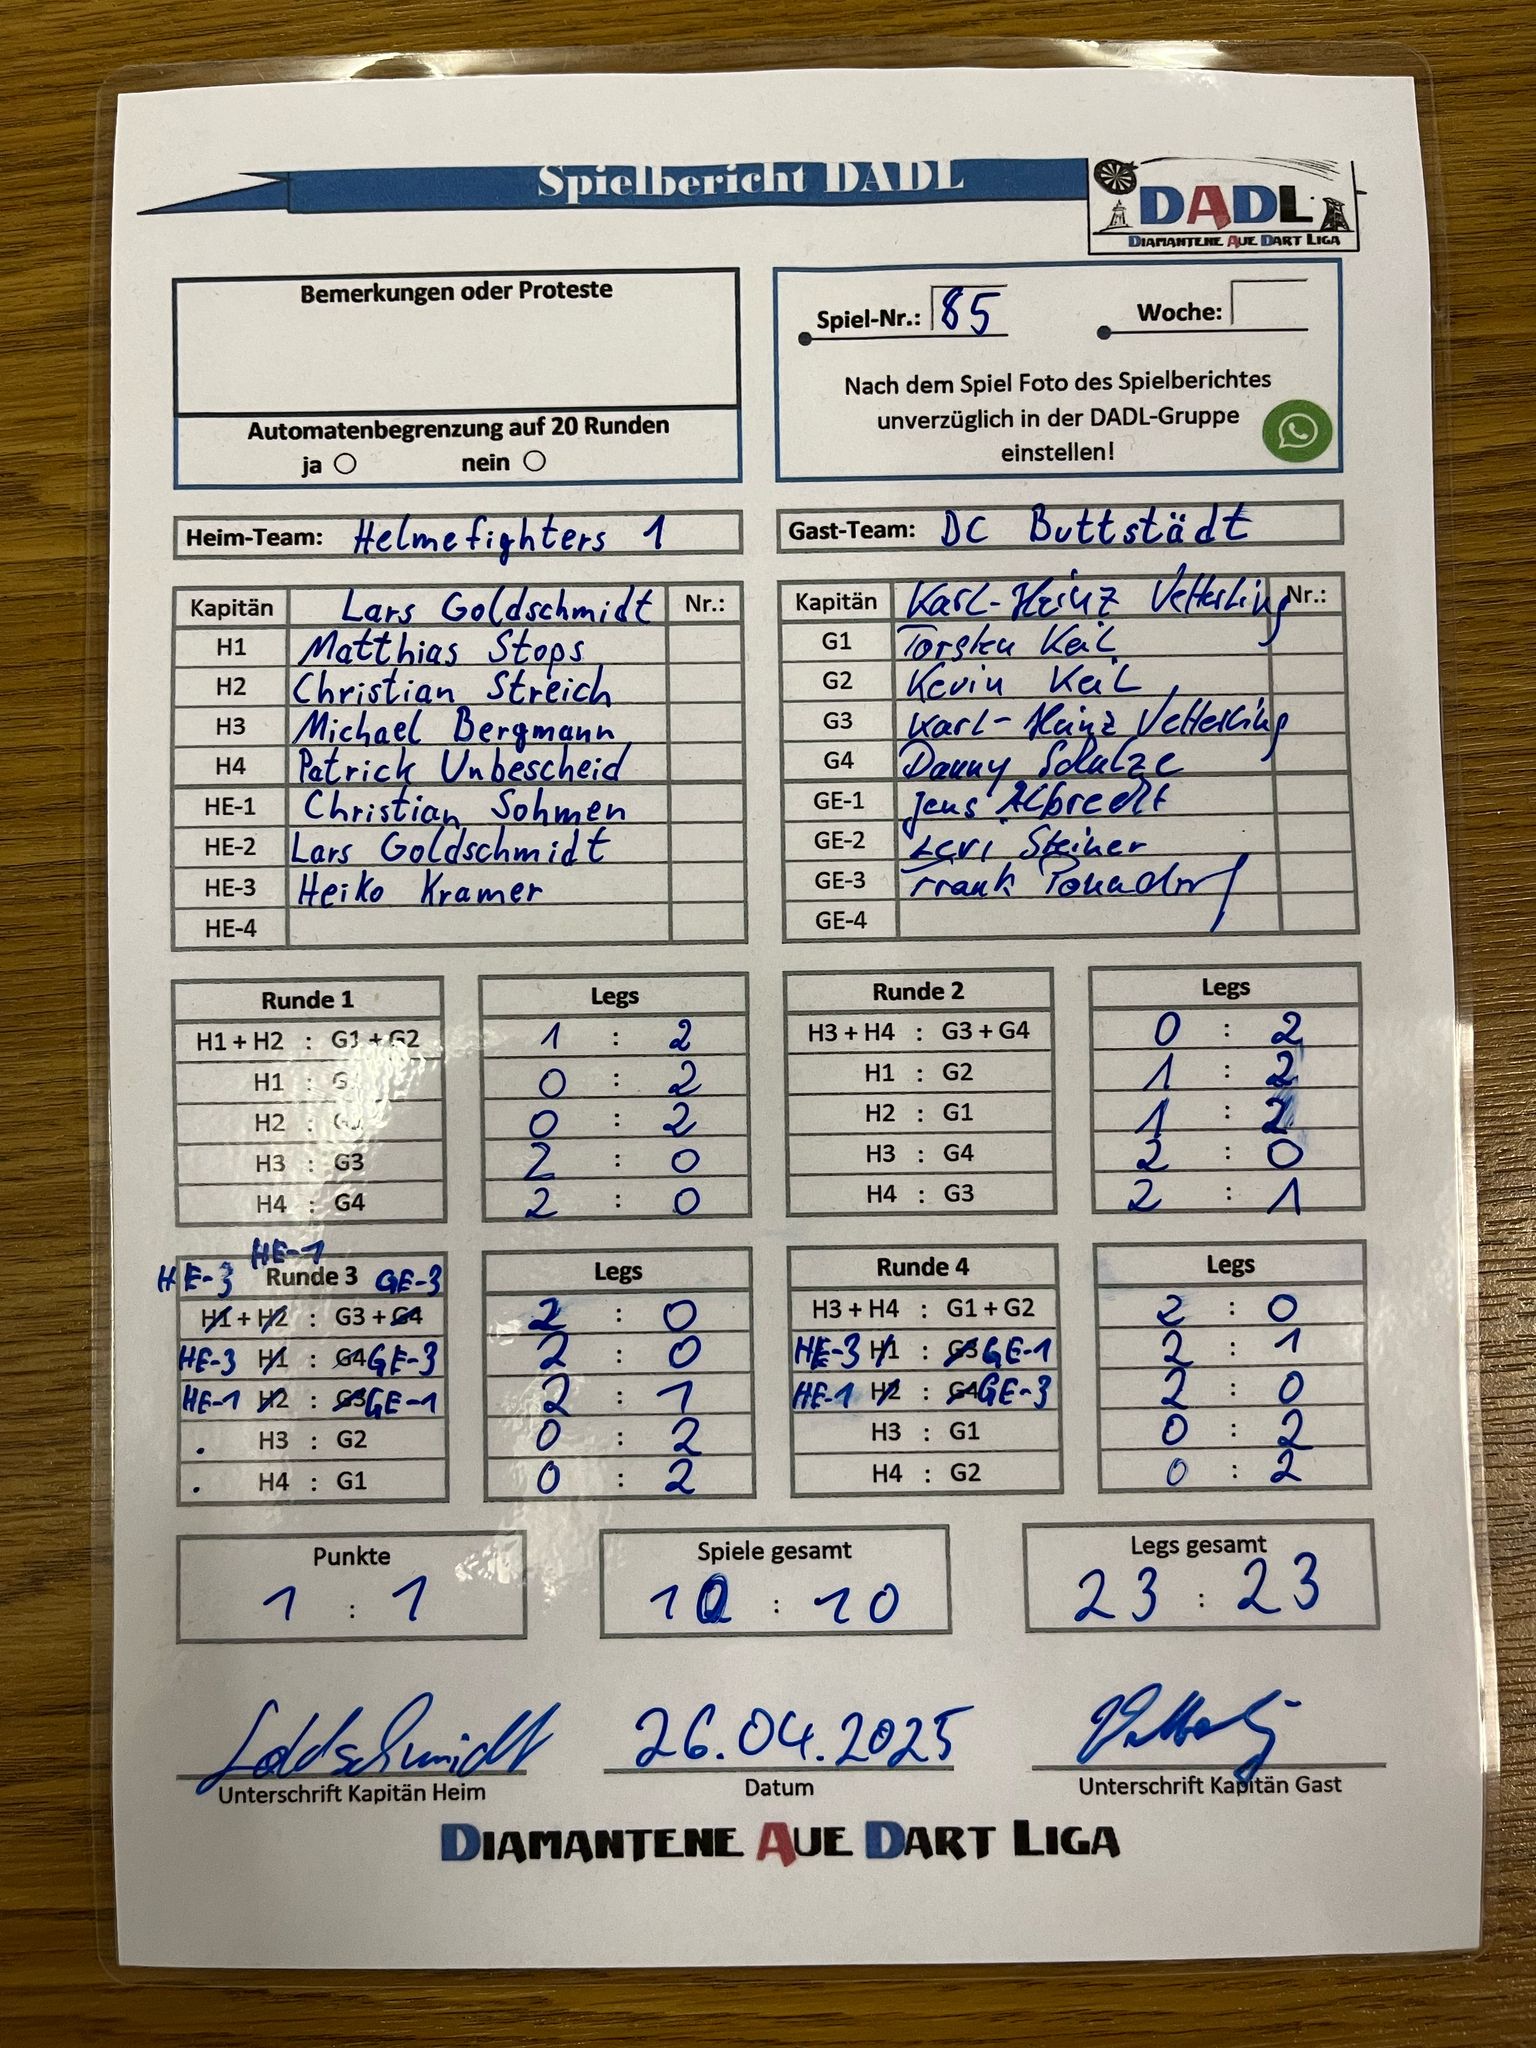 Spielbericht DADL
DADL
DIAMANTENE AUE DART LIGA
Bemerkungen oder Proteste
Automatenbegrenzung auf 20 Runden
ja nein
Spiel-Nr.: 85 Woche:
Nach dem Spiel Foto des Spielberichtes
unverzüglich in der DADL-Gruppe
einstellen!
Heim-Team: Helmefighters 1
Kapitän Lars Goldschmidt Nr.:
H1 Matthias Stops
H2 Christian Streich
H3 Michael Bergmann
H4 Patrick Unbescheid
HE-1 Christian Sohmen
HE-2 Lars Goldschmidt
HE-3 Heiko Kramer
HE-4
Gast-Team: DC Buttstädt
Kapitän Karl-Heinz Vetterling Nr.:
G1 Torsten Keil
G2 Kevin Keil
G3 Karl-Heinz Vetterling
G4 Danny Schulze
GE-1 Jens Albrecht
GE-2 Levi Steiner
GE-3 Frank
GE-4
Runde 1 Legs
H1 + H2 : G1 + G2 1 : 2
H1 : 0 : 2
H2 : 0 : 2
H3 : G3 2 : 0
H4 : G4 2 : 0
Runde 2 Legs
H3 + H4 : G3 + G4 0 : 2
H1 : G2 1 : 2
H2 : G1 1 : 2
H3 : G4 2 : 0
H4 : G3 2 : 1
HE-1
HE-3 Runde 3 GE-3 Legs
H1 + H2 : G3 + G4 2 : 0
HE-3 H1 : G4 GE-3 2 : 0
HE-1 H2 : G3 GE-1 2 : 1
. H3 : G2 0 : 2
. H4 : G1 0 : 2
Runde 4 Legs
H3 + H4 : G1 + G2 2 : 0
HE-3 H1 : G3 GE-1 2 : 1
HE-1 H2 : G4 GE-3 2 : 0
H3 : G1 0 : 2
H4 : G2 0 : 2
Punkte
1 : 1
Spiele gesamt
10 : 10
Legs gesamt
23 : 23
Goldschmidt
Unterschrift Kapitän Heim
26.04.2025
Datum
Unterschrift Kapitän Gast
DIAMANTENE AUE DART LIGA